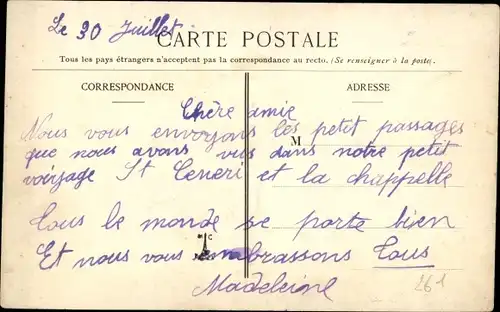 Le 30 Juillet
CARTE POSTALE
Tous les pays étrangers n'acceptent pas la correspondance au recto. (Se renseigner à la poste).
CORRESPONDANCE
ADRESSE
Chère amie
M
Nous vous envoyons les petit passages
que nous avons vus dans notre petit
voiyage St Ceneri et la chappelle
Tous le monde se porte bien
Et nous vous embrassons Tous
Madeleine
261